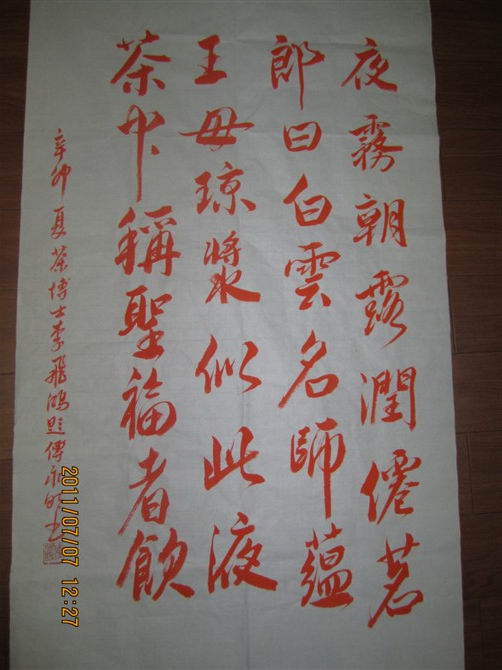 夜霧朝露潤僊茗
郎曰白雲名師蘊
王母琼漿似此液
茶中稱聖福者飲
辛卯夏茶博士李飛鴻題傅永明书
2011/07/07 12:27